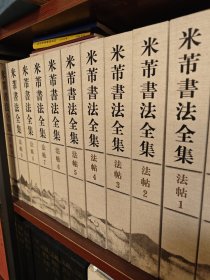 米芾書法全集 法帖 1
米芾書法全集 法帖 2
米芾書法全集 法帖 3
米芾書法全集 法帖 4
米芾書法全集 法帖 5
米芾書法全集 法帖 6
米芾書法全集 法帖 7
米芾書法全集 法帖
米芾書法全集 法帖